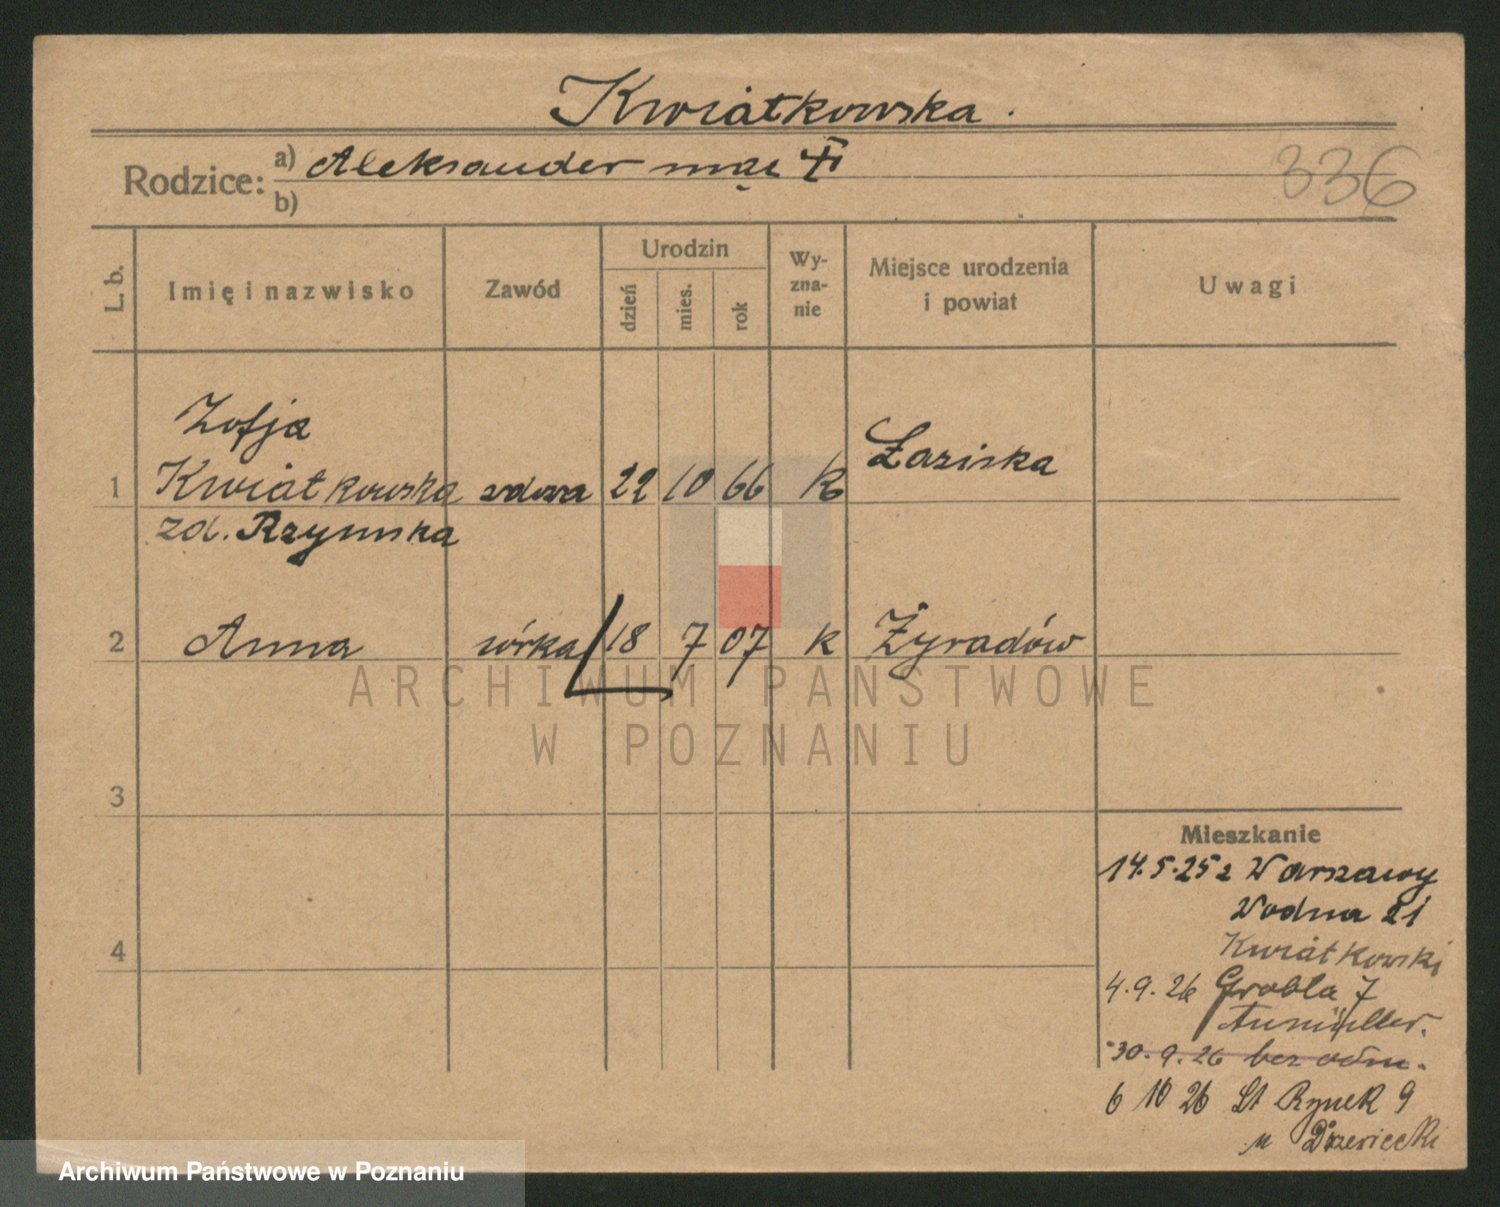 Kwiatkowska.
Rodzice: a) Aleksander mąż
b)
336
L. b. Imię i nazwisko Zawód Urodzin dzień mies. rok Wyznanie Miejsce urodzenia i powiat Uwagi
Zofja
1 Kwiatkowska wdowa 22 10 66 k Łaziska
zd. Rzymska
2 Anna córka 18 7 07 k Żyradów
3
4
Mieszkanie
14.5.25 z Warszawy
Wodna 21
Kwiatkowski
4.9.26 Grobla 7
30.9.26 bez odm.
6 10 26 St Rynek 9
u
ARCHIWUM PAŃSTWOWE
W POZNANIU
Archiwum Państwowe w Poznaniu